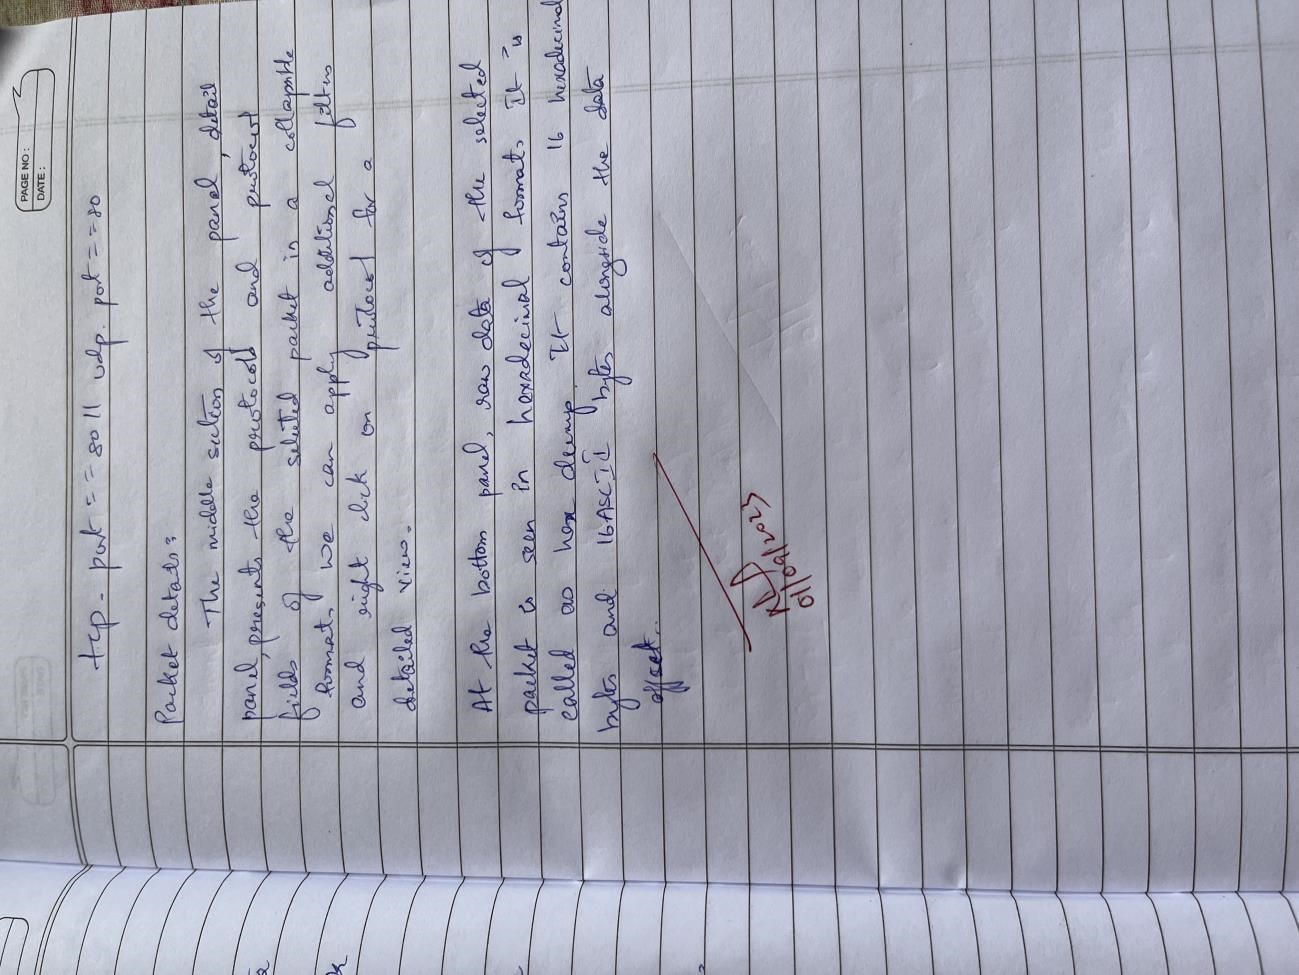 PAGE NO:
DATE:
tcp. port == 80 || udp. port == 80
Packet details:
The middle section of the panel, detail
panel, presents the protocols and protocol
fields of the selected packet in a collapsible
format. we can apply additional filters
and right click on protocol for a
detailed view.
At the bottom panel, raw data of the selected
packet is seen in hexadecimal format. It is
called as hex dump. It contains 16 hexadecimal
bytes and 16 ASCII bytes alongside the data
offset.